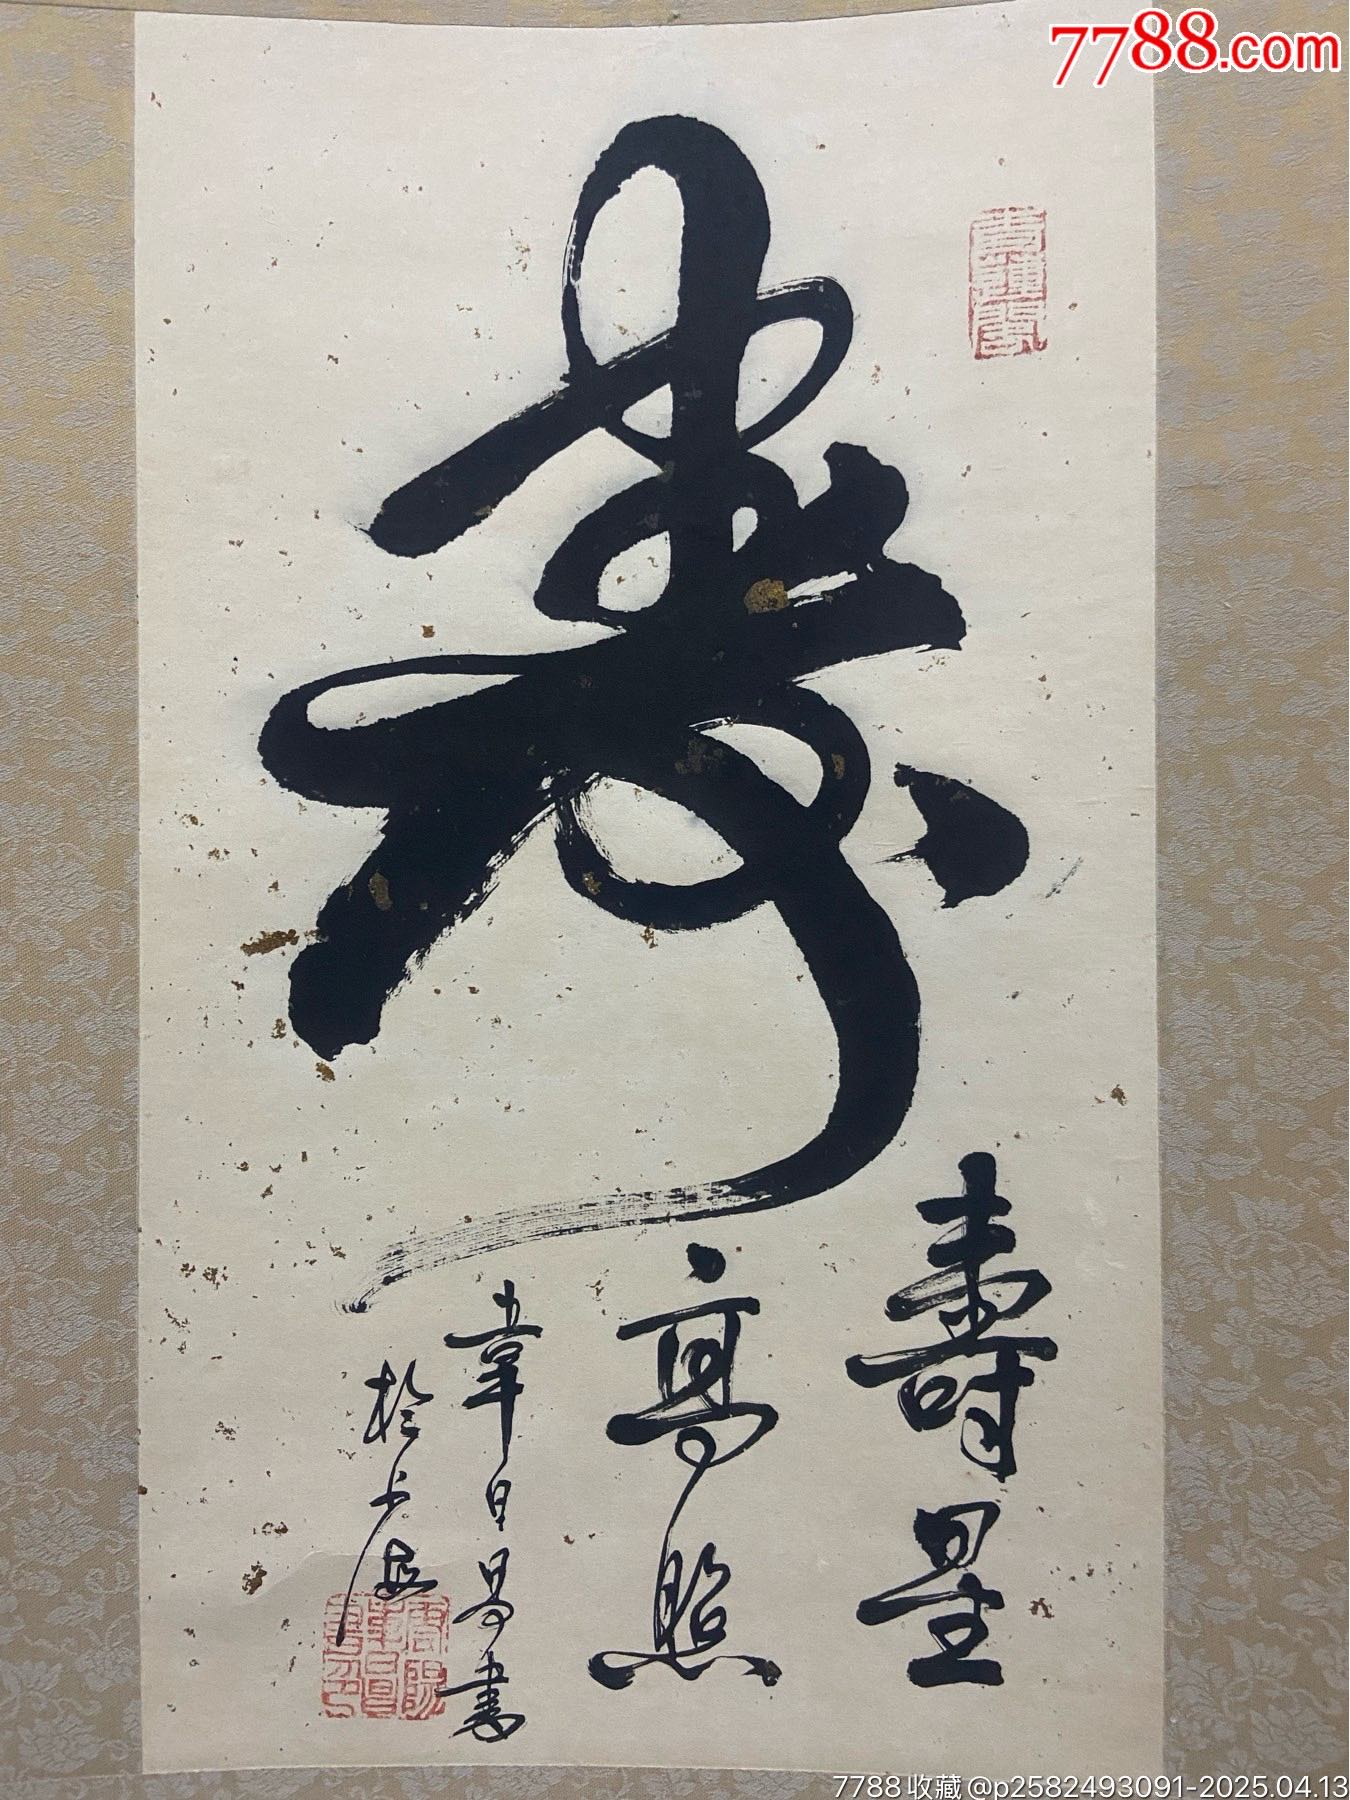 7788.com
寿
壽星
高照
韋日昌書
於
7788收藏@p2582493091-2025.04.13